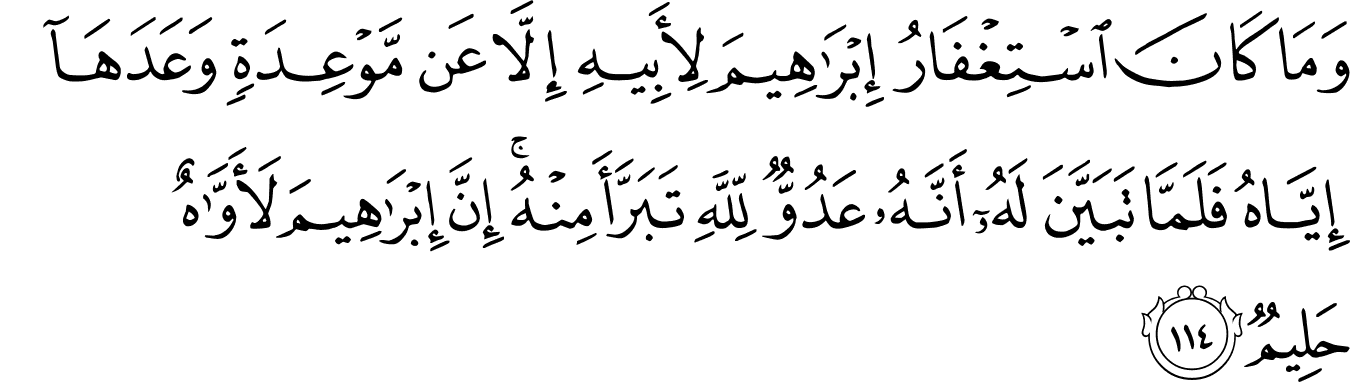 وَمَا كَانَ ٱسْتِغْفَارُ إِبْرَٰهِيمَ لِأَبِيهِ إِلَّا عَن مَّوْعِدَةٍ وَعَدَهَآ
إِيَّاهُ فَلَمَّا تَبَيَّنَ لَهُۥٓ أَنَّهُۥ عَدُوٌّ لِّلَّهِ تَبَرَّأَ مِنْهُ ۚ إِنَّ إِبْرَٰهِيمَ لَأَوَّٰهٌ
حَلِيمٌ ١١٤